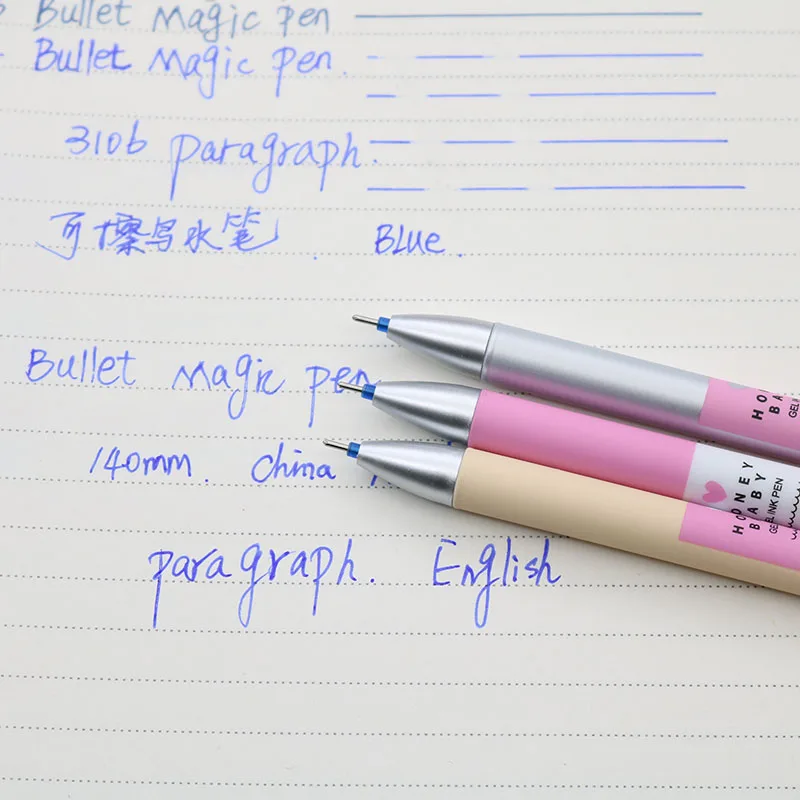 Bullet Magic pen
Bullet Magic pen.
3106 paragraph.
可擦写水笔 . Blue.
Bullet Magic pen
140mm. China
paragraph. English
HO
BA
GEL
HONEY
BABY
GEL INK PEN
HONEY
BABY
GEL INK PEN